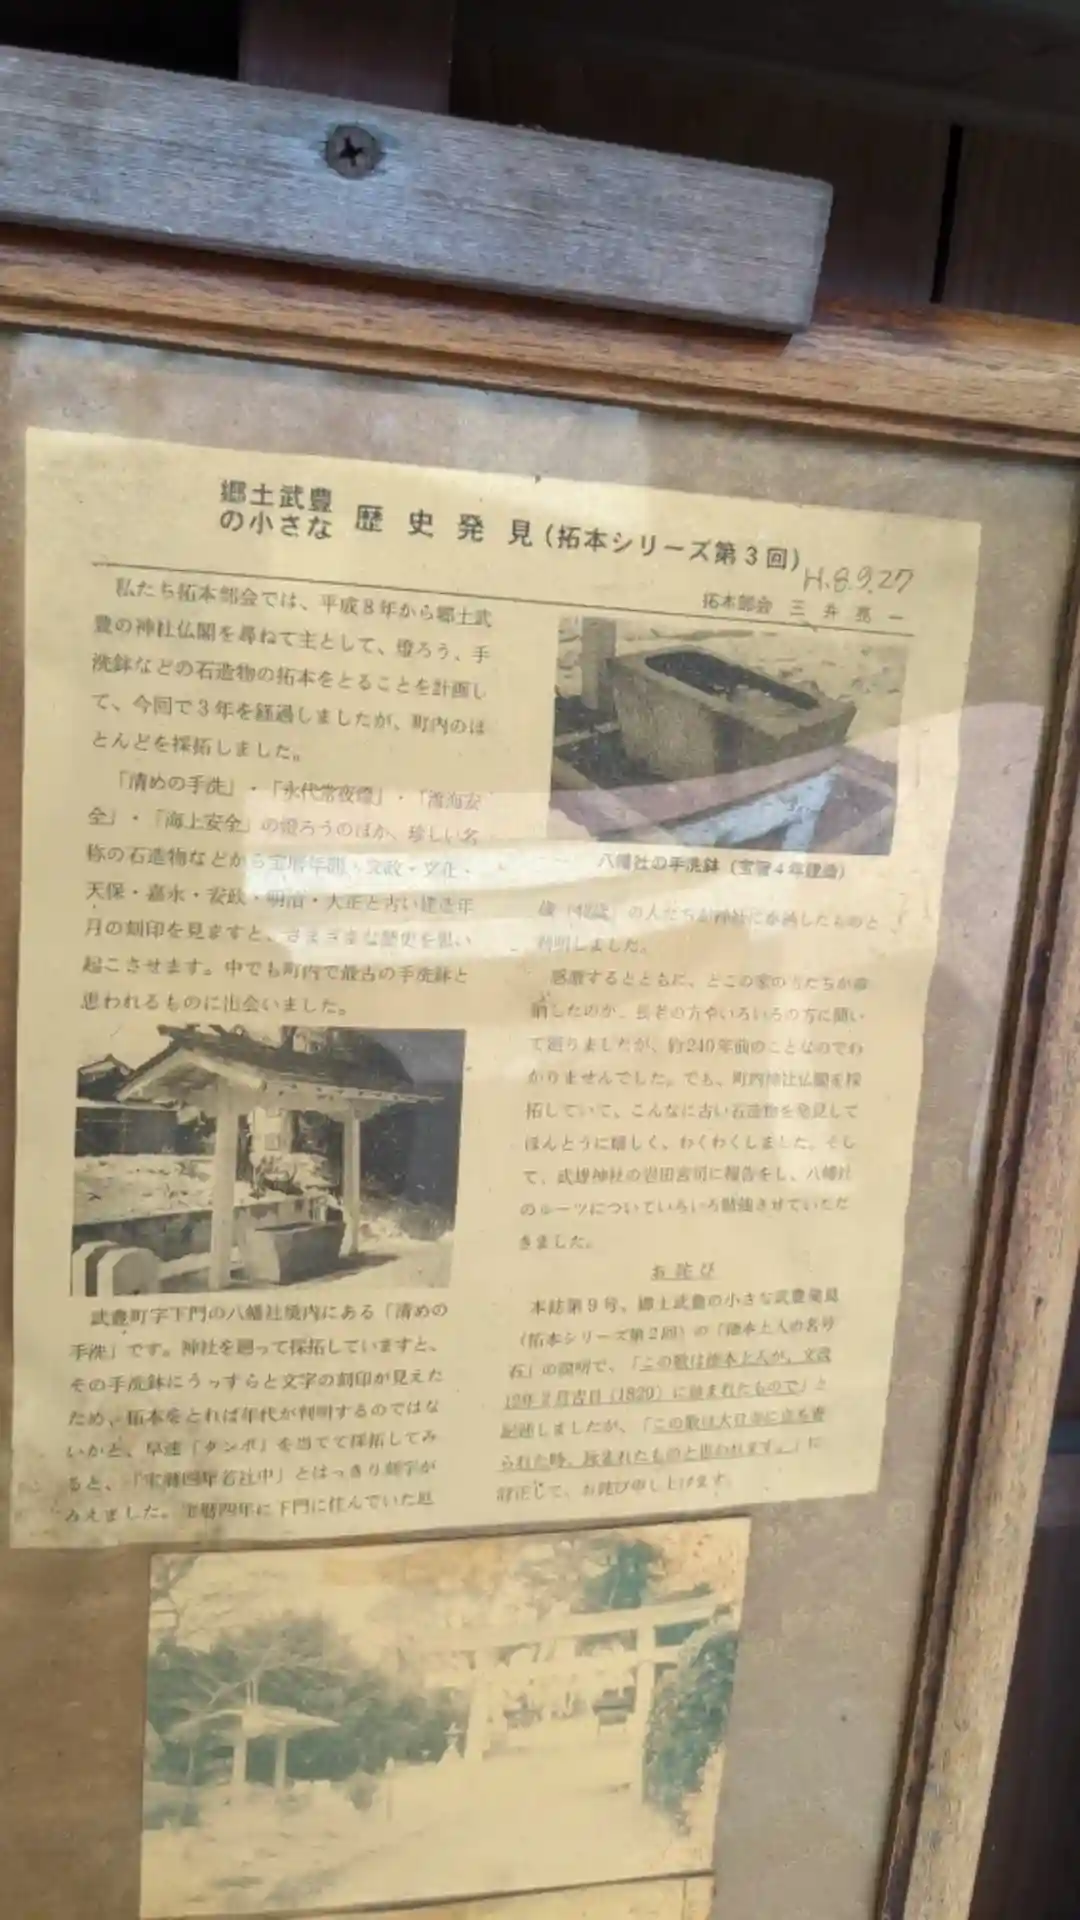 郷土武豊
の小さな
歴史発見(拓本シリーズ第3回)
H.8.9.27
拓本部会 三井 一
私たち拓本部会では、平成8年から郷土武
豊の神社仏閣を尋ねて主として、燈ろう、手
洗鉢などの石造物の拓本をとることを計画し
て、今回で3年を経過しましたが、町内のほ
とんどを採拓しました。
「清めの手洗」・「永代常夜燈」・「海安
全」・「海上安全」の燈ろうのほか、珍しい名
称の石造物などから宝暦年間・文政・文化・
天保・嘉永・安政・明治・大正と古い建造年
月の刻印を見ますと、さまざまな歴史を思い
起こさせます。中でも町内で最古の手洗鉢と
思われるものに出会いました。
武豊町字下門の八幡社境内にある「清めの
手洗」です。神社を廻って採拓していますと、
その手洗鉢にうっすらと文字の刻印が見えた
ため、拓本をとれば年代が判明するのではな
いかと、早速「タンポ」を当てて採拓してみ
ると、「宝暦四年若社中」とはっきり刻字が
みえました。宝暦四年に下門に住んでいた厄
八幡社の手洗鉢(宝暦4年建造)
歳(42歳)の人たちが神社に奉納したものと
判明しました。
感激するとともに、どこの家の方たちが奉
納したのか、長老の方やいろいろの方に聞い
て廻りましたが、約240年前のことなのでわ
かりませんでした。でも、町内神社仏閣を採
拓していて、こんなに古い石造物を発見して
ほんとうに嬉しく、わくわくしました。そし
て、武雄神社の岩田宮司に報告をし、八幡社
のルーツについていろいろ勉強させていただ
きました。
お詫び
本誌第9号、郷土武豊の小さな武豊発見
(拓本シリーズ第2回)の「徳本上人の名号
石」の説明で、「この歌は徳本上人が、文政
12年2月吉日(1829)に詠まれたもので」と
記述しましたが、「この歌は大日寺に立ち寄
られた時、詠まれたものと思われます。」に
訂正して、お詫び申し上げます。